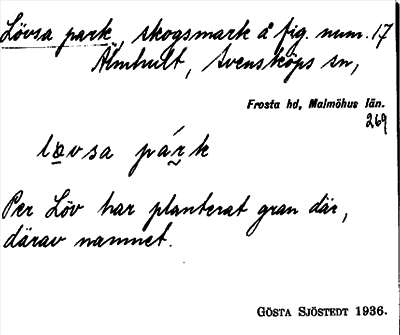 Lövsa park, skogsmark å fig. num. 17
Älmhult, Svensköps sn,
Frosta hd, Malmöhus län.
269
lovsa párk
Per Löv har planterat gran där,
därav namnet.
GÖSTA SJÖSTEDT 1936.